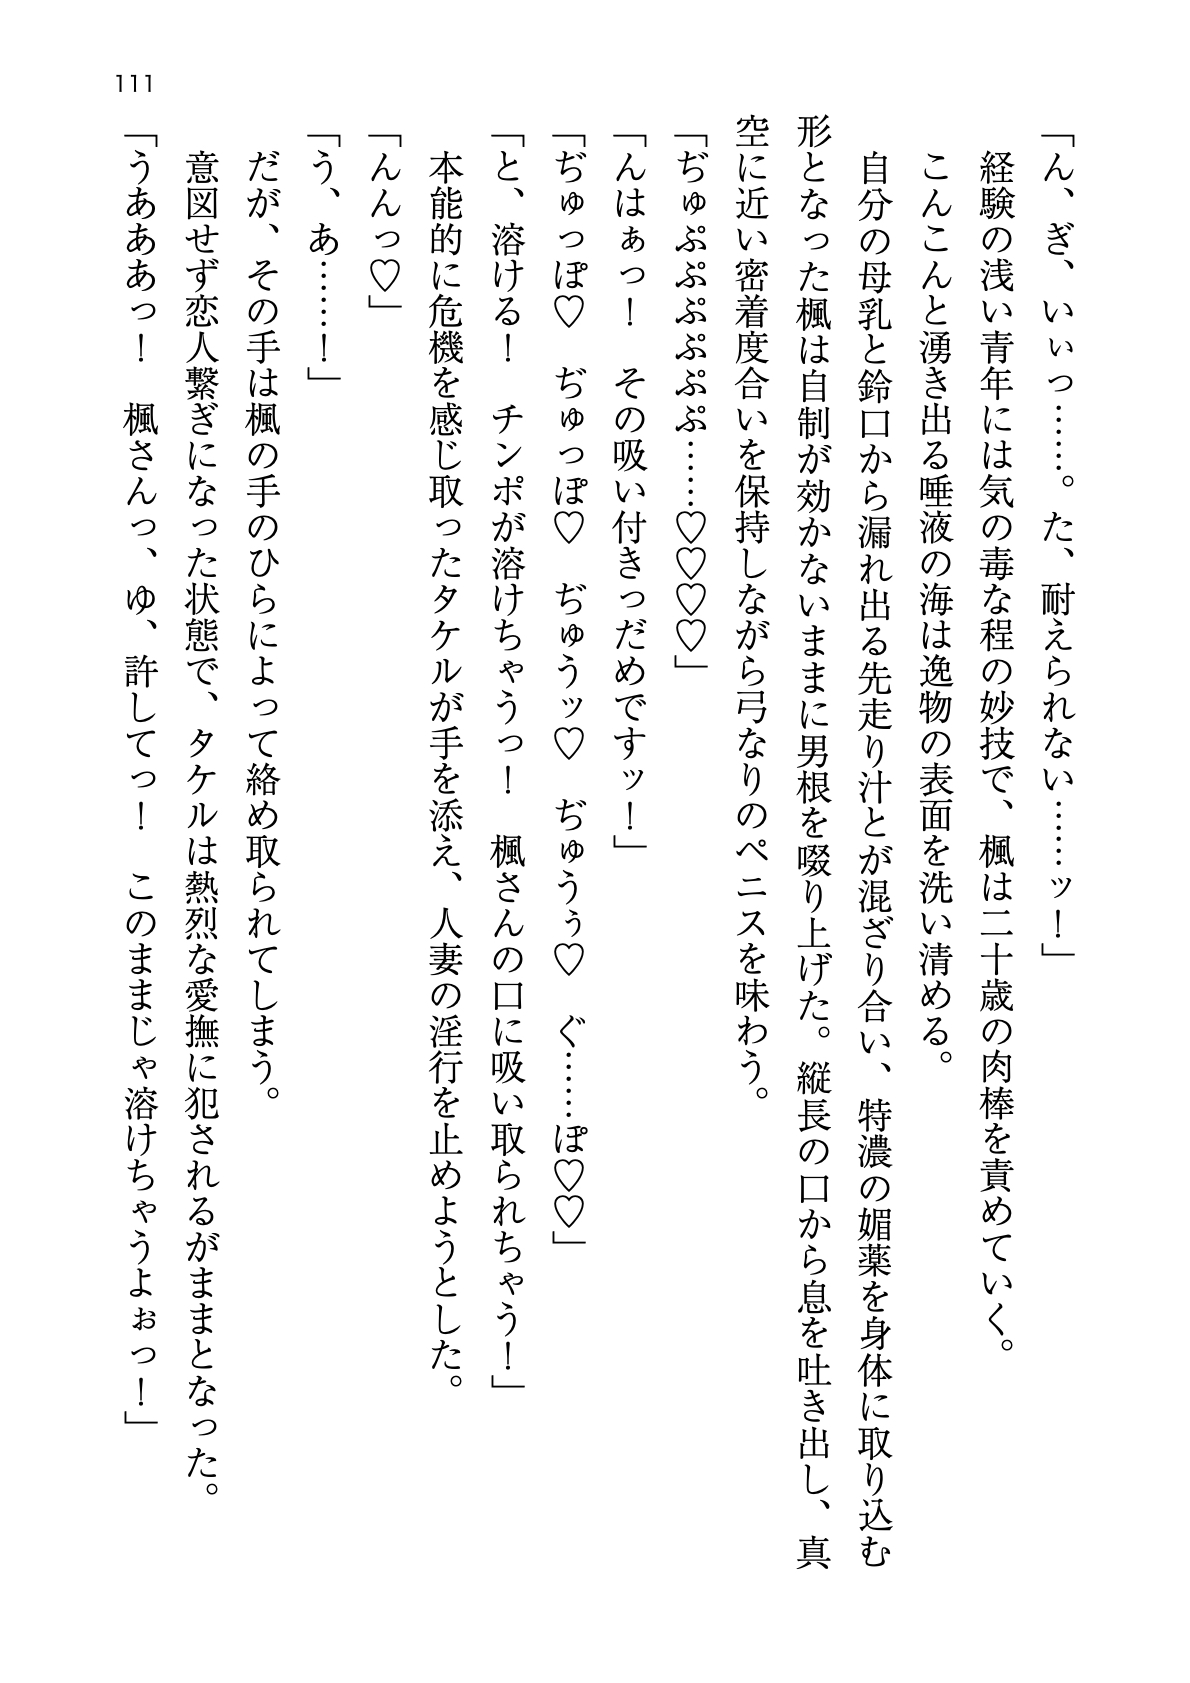 111
「ん、ぎ、いぃっ……。た、耐えられない……ッ！」
経験の浅い青年には気の毒な程の妙技で、楓は二十歳の肉棒を責めていく。
こんこんと湧き出る唾液の海は逸物の表面を洗い清める。
自分の母乳と鈴口から漏れ出る先走り汁とが混ざり合い、特濃の媚薬を身体に取り込む
形となった楓は自制が効かないままに男根を啜り上げた。縦長の口から息を吐き出し、真
空に近い密着度合いを保持しながら弓なりのペニスを味わう。
「ぢゅぷぷぷぷぷぷ……♡♡♡♡」
「んはぁっ！　その吸い付きっだめですッ！」
「ぢゅっぽ♡　ぢゅっぽ♡　ぢゅうッ♡　ぢゅうぅ♡　ぐ……ぽ♡♡」
「と、溶ける！　チンポが溶けちゃうっ！　楓さんの口に吸い取られちゃう！」
本能的に危機を感じ取ったタケルが手を添え、人妻の淫行を止めようとした。
「んんっ♡」
「う、あ……！」
だが、その手は楓の手のひらによって絡め取られてしまう。
意図せず恋人繋ぎになった状態で、タケルは熱烈な愛撫に犯されるがままとなった。
「うあああっ！　楓さんっ、ゆ、許してっ！　このままじゃ溶けちゃうよぉっ！」